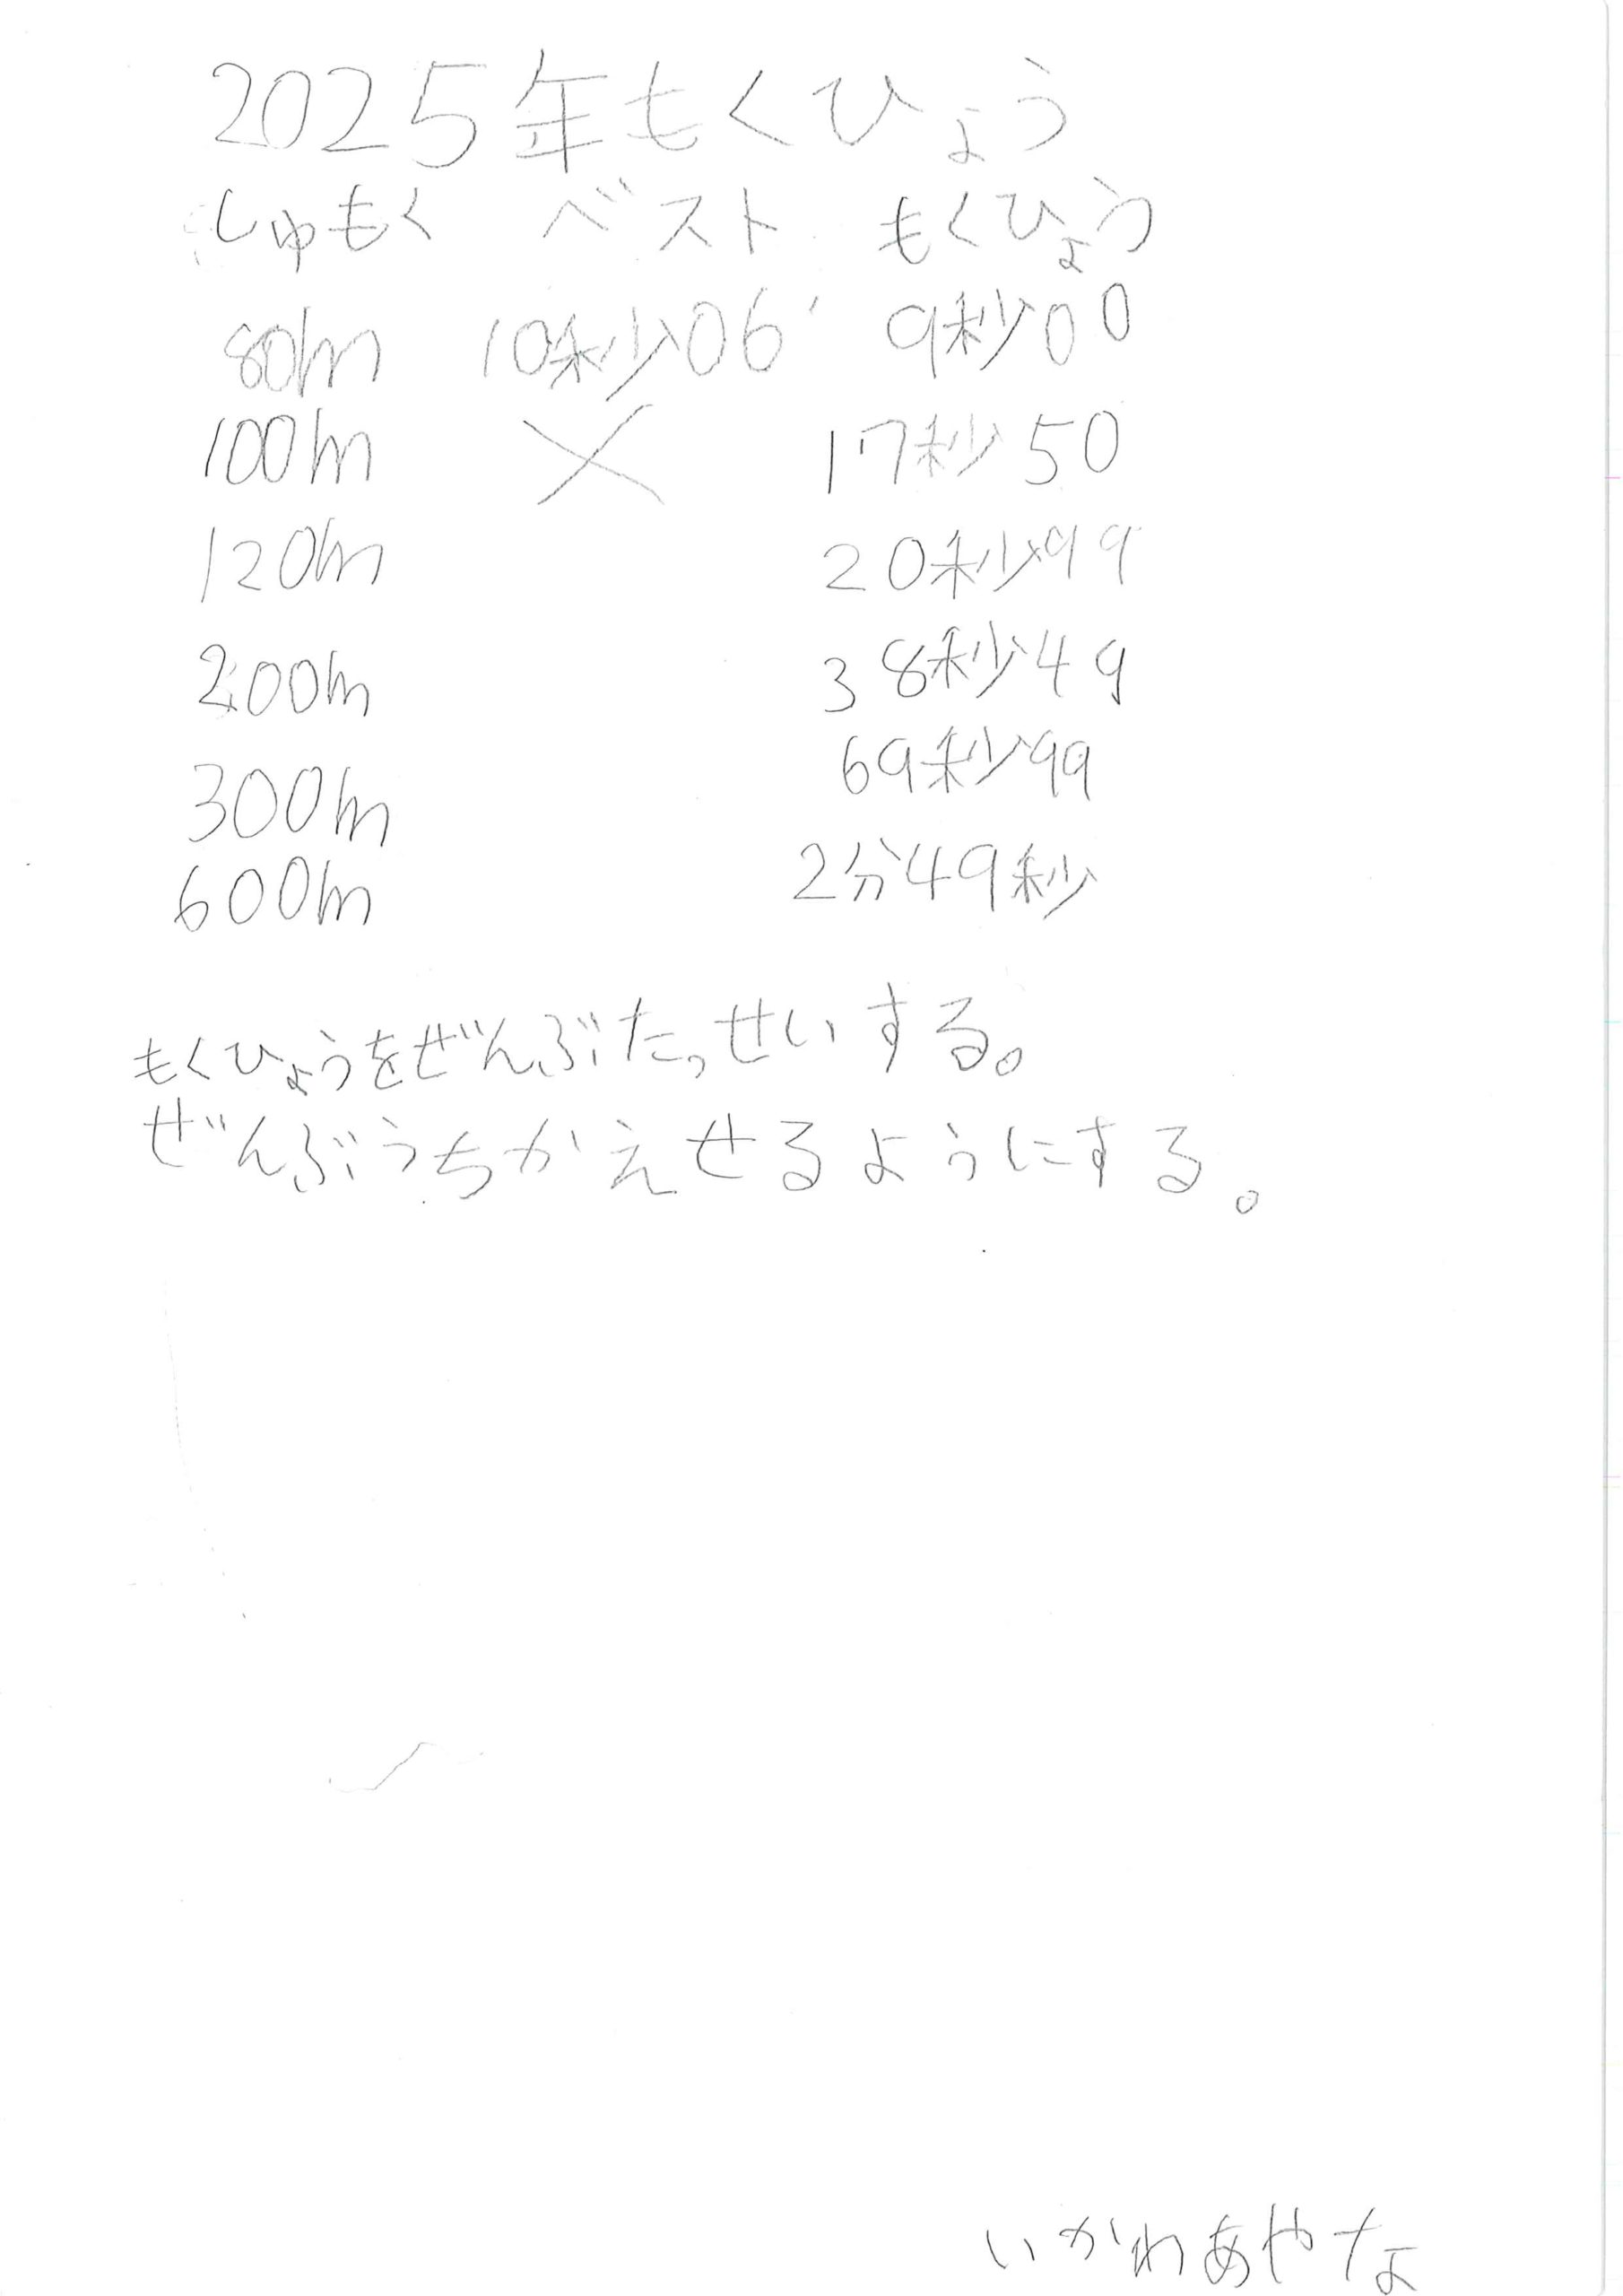 2025年もくひょう
しゅもく ベスト もくひょう
80m 10秒06 9秒00
100m × 17秒50
120m 20秒99
200m 38秒49
300m 69秒99
600m 2分49秒
もくひょうをぜんぶたっせいする。
ぜんぶうちかえせるようにする。
いかわあやな